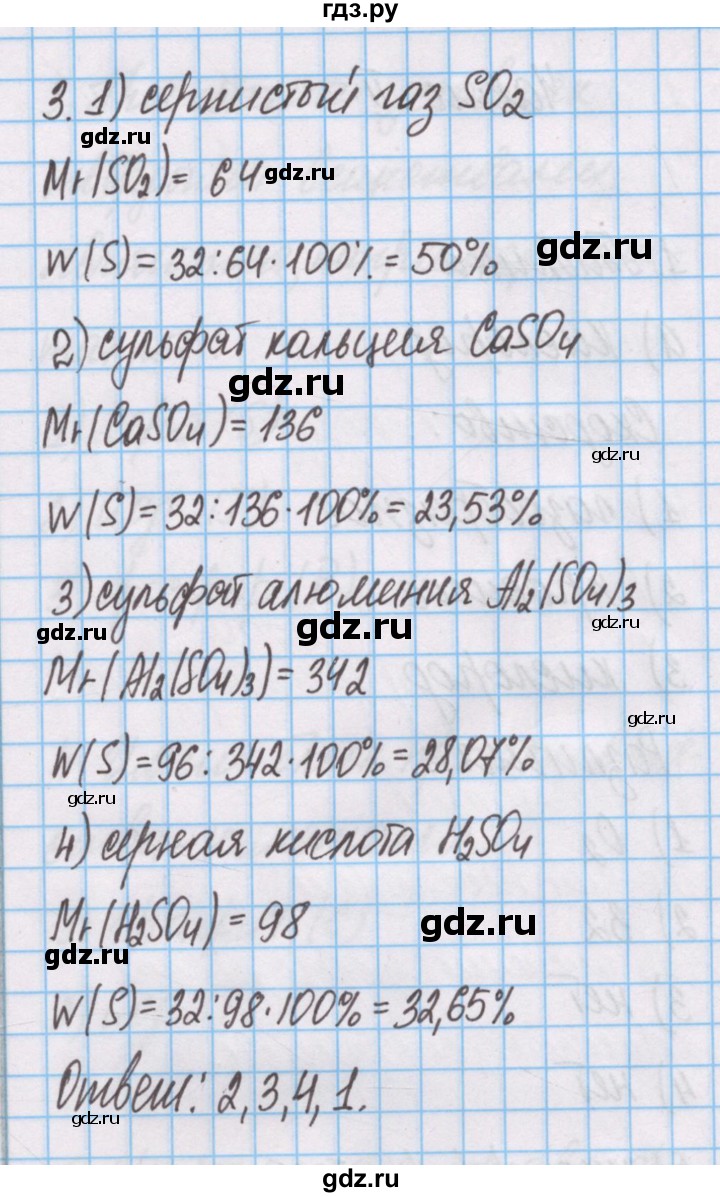 гдз.ру
3. 1) сернистый газ SO2
gdz.ru
Mr(SO2) = 64
gdz.ru
gdz.ru
W(S) = 32:64·100% = 50%
2) сульфат кальция CaSO4
gdz.ru
Mr(CaSO4) = 136
gdz.ru
W(S) = 32:136·100% = 23,53%
3) сульфат алюминия Al2(SO4)3
gdz.ru
gdz.ru
gdz.ru
Mr(Al2(SO4)3) = 342
gdz.ru
W(S) = 96:342·100% = 28,07%
gdz.ru
4) серная кислота H2SO4
Mr(H2SO4) = 98
gdz.ru
gdz.ru
W(S) = 32:98·100% = 32,65%
Ответ: 2, 3, 4, 1.
gdz.ru
gdz.ru
gdz.ru